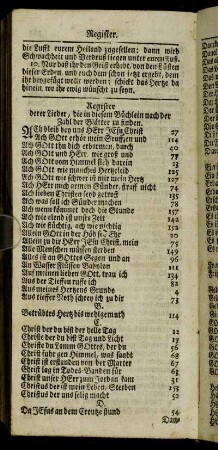 Register.
die Lufft eurem Heiland zugesellen: dann wird
Schwachheit und Verdruß liegen unter eurem Fuß.
10. Nur daß ihr den Geist erhebt, von den Lüsten
dieser Erden und euch dem schon jetzt ergebt, dem
ihr beygefügt wolt werden; schickt das Hertze da
hinein, wo ihr ewig wünscht zu seyn.
Register
derer Lieder, die in diesem Büchlein nach der
Zahl der Blätter zu finden
ACh bleib bey uns HErr JEsu Christ 27
Ach GOtt erhör mein Seuffzen und 114
Ach GOtt thu dich erbarmen, durch 40
Ach GOtt und HErr, wie groß und 77
Ach GOtt vom Himmel sieh darein 23
Ach GOtt wie manches Hertzeleid 125
Ach GOtt wie schwer ist mir mein Hertz 127
Ach HErr mich armen Sünder, straf nicht 74
Ach lieben Christen seyd getrost 135
Ach was soll ich Sünder machen 78
Ach wenn kömmet doch die Stunde 157
Ach wie elend ist unsre Zeit 142
Ach wie flüchtig, ach wie nichtig 152
Allein GOtt in der Höh sey Ehr 20
Allein zu dir HErr JEsu Christ, mein 75
Alle Menschen müssen sterben 149
Alles ist an GOttes Segen und an 96
An Wasser Flüssen Babylon 121
Auf meinen lieben GOtt, wau ich 134
Aus der Tieffen ruffe ich
Aus meines Hertzens Grunde 4
Aus tieffer Noth schrey ich zu dir 73
B.
Betrübtes Hertz bis wohlgemuth 114
C.
Christe der du bist der helle Tag 12
Christe der du bist Tag und Licht 13
Christe du Lamm GOttes, der du 56
Christ fuhr gen Himmel, was sandt 68
Christ ist erstanden von der Marter 67
Christ lag in Todes-Banden für 63
Christ unser HErr zum Jordan kam 31
Christus der ist mein Leben, Sterben 153
Christus der uns selig macht 52
D.
Da JEsus an dem Creutze stund 54
Dank